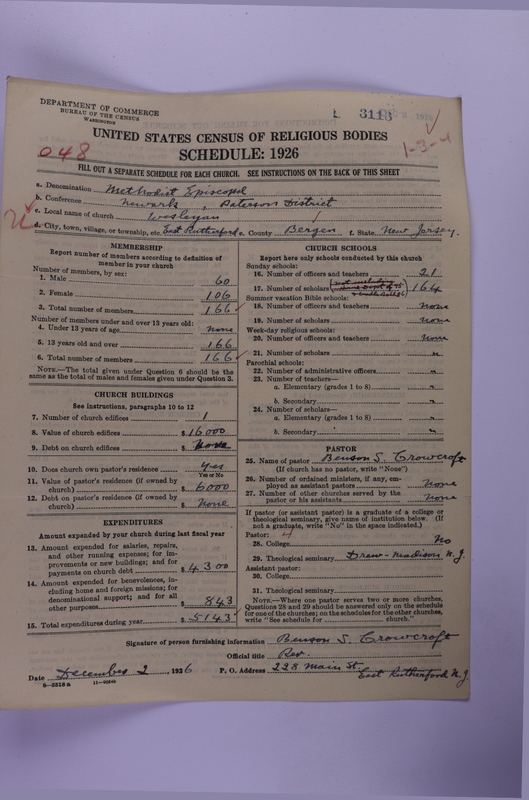 DEPARTMENT OF COMMERCE
BUREAU OF THE CENSUS
WASHINGTON
L 3113
UNITED STATES CENSUS OF RELIGIOUS BODIES
048
SCHEDULE: 1926
1-3-4
FILL OUT A SEPARATE SCHEDULE FOR EACH CHURCH. SEE INSTRUCTIONS ON THE BACK OF THIS SHEET
a. Denomination Methodist Episcopal
b. Conference Newark, Paterson District
c. Local name of church Wesleyan
d. City, town, village, or township, etc. East Rutherford e. County Bergen f. State New Jersey.
MEMBERSHIP
Report number of members according to definition of member in your church
Number of members, by sex:
1. Male 60
2. Female 106
3. Total number of members 166
Number of members under and over 13 years old:
4. Under 13 years of age None
5. 13 years old and over 166
6. Total number of members 166
NOTE.—The total given under Question 6 should be same as the total of males and females given under Question 3.
CHURCH BUILDINGS
See instructions, paragraphs 10 to 12
7. Number of church edifices 1
8. Value of church edifices $ 16000
9. Debt on church edifices $ None
10. Does church own pastor's residence Yes
Yes or No
11. Value of pastor's residence (if owned by church) $ 6000
12. Debt on pastor's residence (if owned by church) $ None
EXPENDITURES
Amount expended by your church during last fiscal year
13. Amount expended for salaries, repairs, and other running expenses; for improvements or new buildings; and for payments on church debt $ 4300
14. Amount expended for benevolences, including home and foreign missions; for denominational support; and for all other purposes $ 843
15. Total expenditures during year $ 5143
CHURCH SCHOOLS
Report here only schools conducted by this church
Sunday schools:
16. Number of officers and teachers 21
17. Number of scholars 164
Summer vacation Bible schools:
18. Number of officers and teachers None
19. Number of scholars none
Week-day religious schools:
20. Number of officers and teachers None
21. Number of scholars "
Parochial schools:
22. Number of administrative officers "
23. Number of teachers—
a. Elementary (grades 1 to 8) "
b. Secondary "
24. Number of scholars—
a. Elementary (grades 1 to 8) "
b. Secondary "
PASTOR
25. Name of pastor Benson S. Crowcroft
(If church has no pastor, write "None")
26. Number of ordained ministers, if any, employed as assistant pastors None
27. Number of other churches served by the pastor or his assistants None
If pastor (or assistant pastor) is a graduate of a college or theological seminary, give name of institution below. (If not a graduate, write "No" in the space indicated.)
Pastor:
28. College No
29. Theological seminary Drew-Madison N.J.
Assistant pastor:
30. College
31. Theological seminary
NOTE.—Where one pastor serves two or more churches, Questions 28 and 29 should be answered only on the schedule for one of the churches; on the schedules for the other churches, write "See schedule for church."
Signature of person furnishing information Benson S. Crowcroft
Official title Rev.
Date December 2, 1926 P. O. Address 228 Main St. East Rutherford N.J.